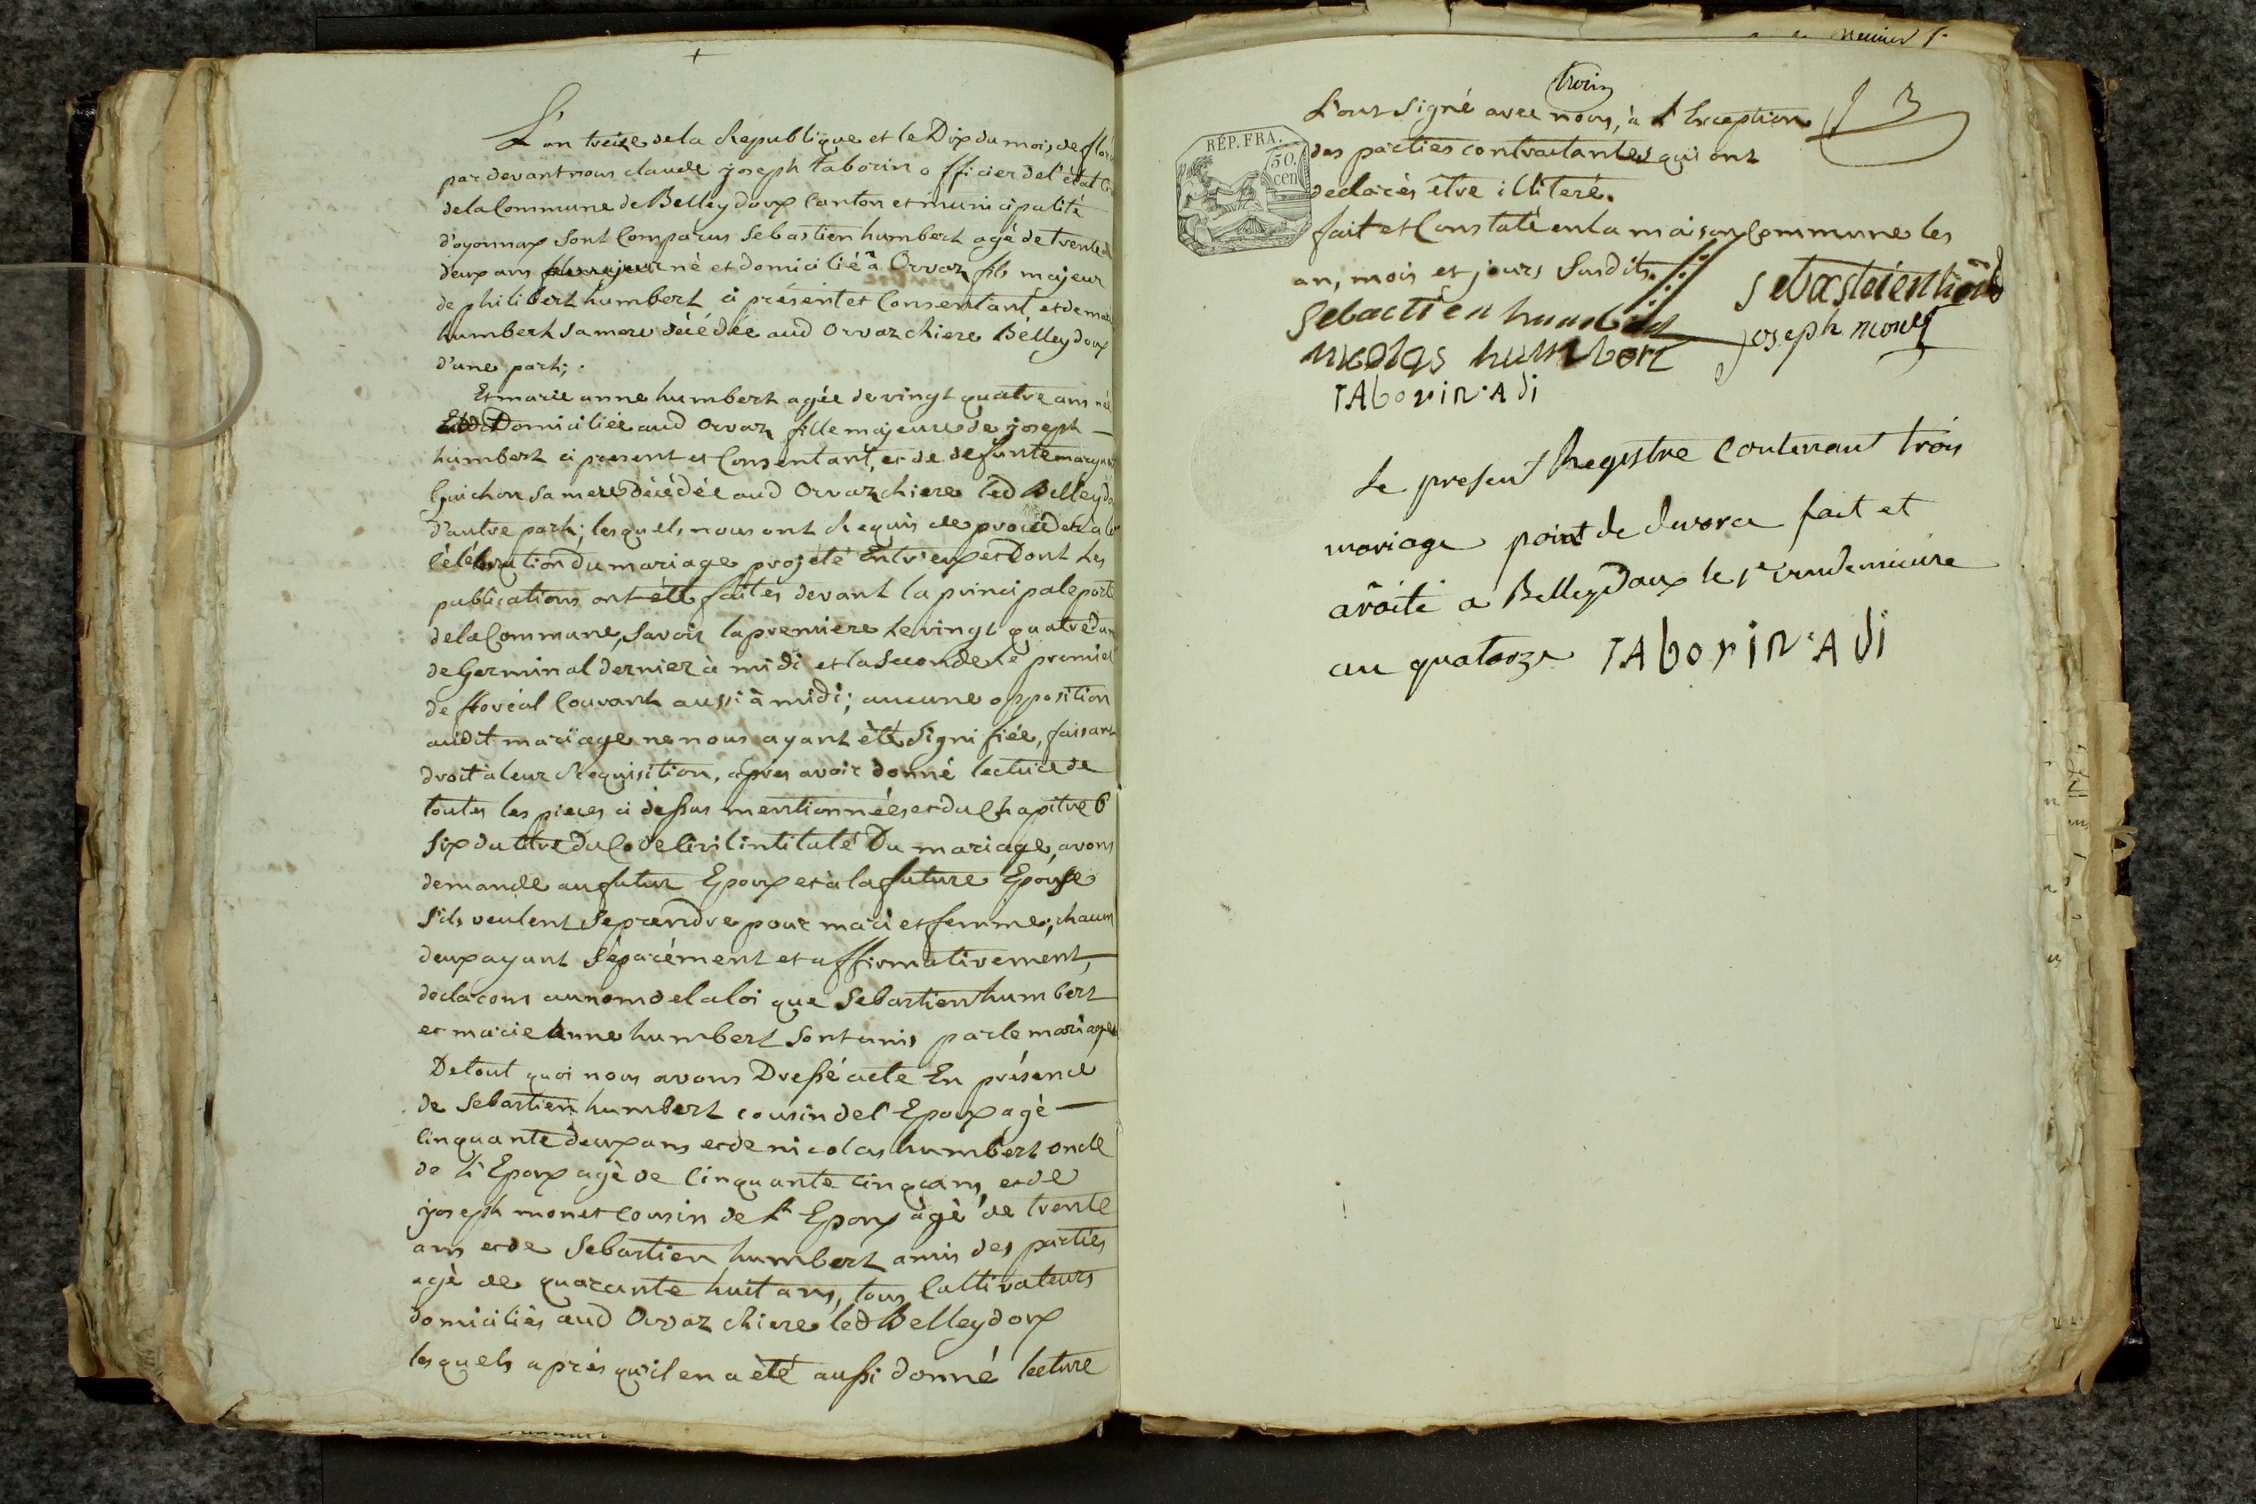 L'an treize de la République et le Dix du mois de flor
par devant nous claude joseph Taborin officier de l'état Ci
de la Commune de Belleydoux Canton et municipalité
d'oyonnax sont Comparus Sebastien humbert agé de trente
deux ans né et domicilié à Orvaz fils majeur
de philibert humbert ci présent et Consentant, et de
humbert sa mere décédée aud Orvaz chiere Belleydoux
d'une part;
Et marie anne humbert agée de vingt quatre ans née
Et Domiciliée aud Orvaz fille majeure de joseph
humbert ci present et Consentant, et de defunte
Guichon sa mere décédée aud Orvaz chiere led Belleydo
d'autre part; lesquels nous ont Requis de procéder a la
Célébration du mariage projété Entr'eux et Dont les
publications ont été faites devant la principale porte
de la Commune, Savoir la premiere le vingt quatre du
de Germinal dernier à midi et la Seconde le premier
de floréal Courant aussi à midi; aucune opposition
audit mariage ne nous ayant été Signifiée, faisant
droit a leur Requisition, apres avoir donné lecture de
toutes les pieces ci dessus mentionnées et du Chapitre 6
Six du titre du Code Civil intitulé Du mariage, avons
demande au futur Epoux et à la future Epouse
S'ils veulent Se prendre pour mari et femme; chacun
deux ayant Séparément et affirmativement,
declarons au nom de la loi que Sebastien humbert
et marie Anne humbert Sont unis par le mariage
De tout quoi nous avons Dressé acte En présence
de Sebastien humbert cousin del' Epoux agé
Cinquante deux ans et de nicolas humbert oncle
de l'Epoux agé de Cinquante Cinq ans, et de
joseph monet Cousin de l' Epoux agé de trente
ans et de Sebastien humbert amis des parties
agé de quarante huit ans, tous Cultivateurs
domiciliés aud Orvaz chiere led Belleydoux
lesquels après qu'il en a été aussi donné lecture
trois
3
L'ont Signé avec nous, à l'Exception
des parties contractantes qui ont
declarés être illiteré.
RÉP. FRA.
50. cen
fait et Constaté en la maison Commune les
an, mois et jours Susdits.
Sebactien humbert
nicolas humbert
joseph monet
TAborin · A di
Le present Registre Contenant trois
mariage point de divorce fait et
arrêté a Belleydoux le 1er vendemiaire
an quatorze TAborin · A di